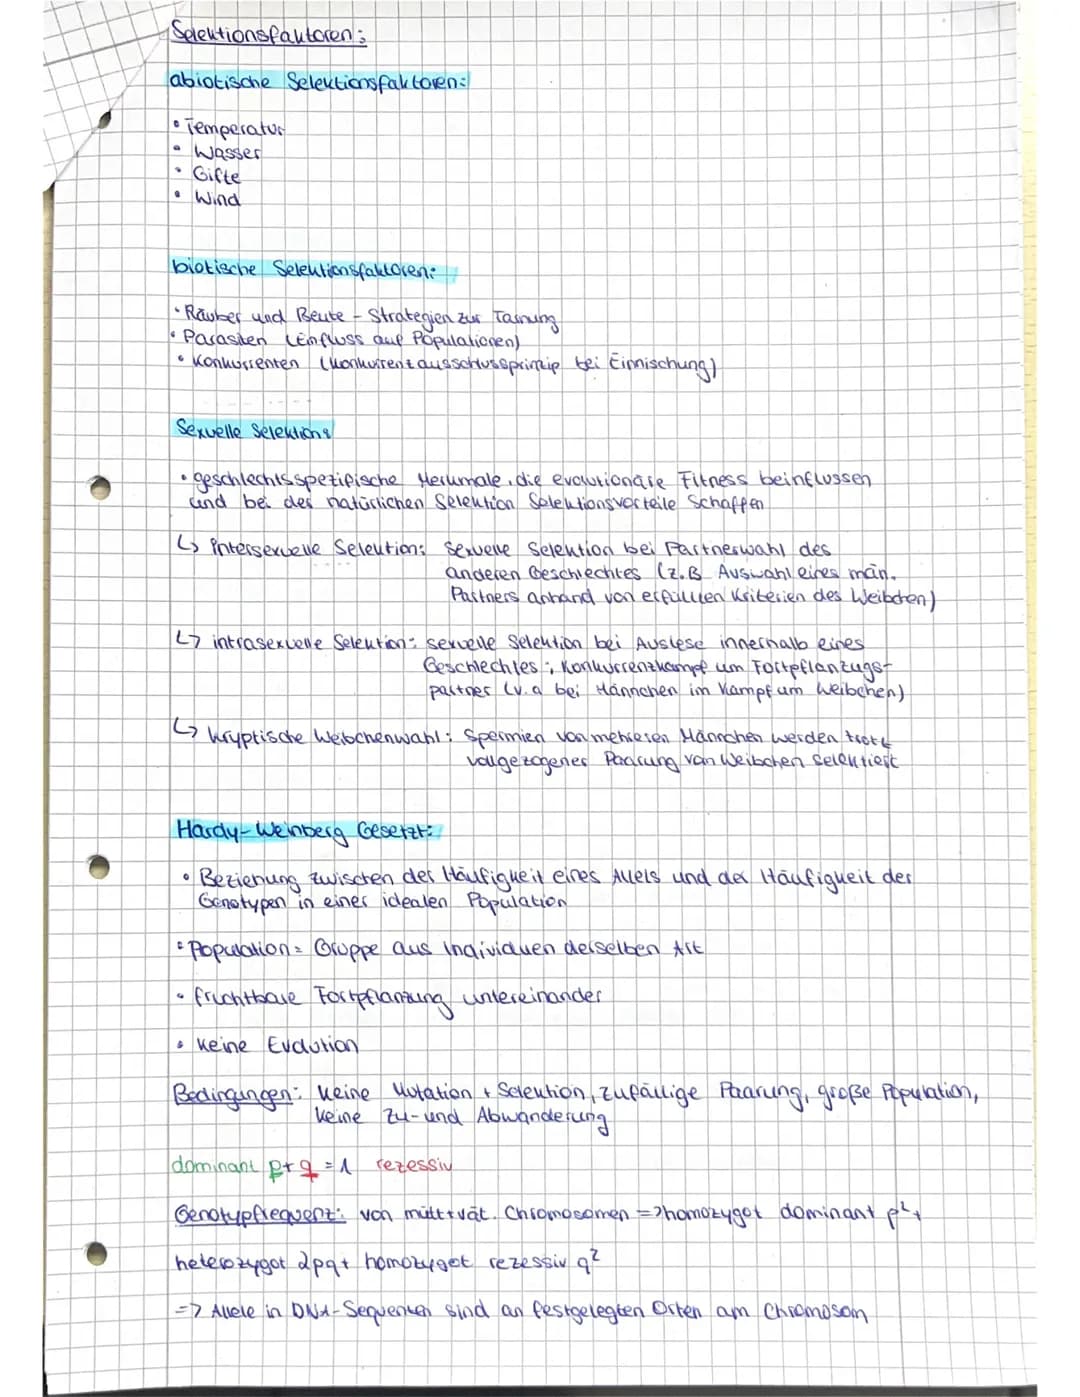 Selektionsfaktoren:
abiotische Selektionsfaktoren:
• Temperatur
• Wasser
• Gifte
• Wind
biotische Selektionsfaktoren:
• Räuber und Beute – Strategien zur Tarnung
• Parasiten (Einfluss auf Populationen)
• Konkurrenten (Konkurrentausschlussprinzip bei Einnischung)
Sexuelle Selektion:
• geschlechtsspezifische Merkmale, die evolutionäre Fitness beinflussen
und bei der natürlichen Selektion Selektionsvorteile schaffen
↳ intersexuelle Selektion: sexuelle Selektion bei Partnerwahl des
anderen Geschlechtes (z.B Auswahl eines män.
Partners anhand von erfüllten Kriterien des Weibchen)
↳ intrasexuelle Selektion: sexuelle Selektion bei Auslese innerhalb eines
Geschlechtes; Konkurrenzkampf um Fortpflanzugs-
partner (v.a bei Männchen im Kampf um Weibchen)
↳ kryptische Weibchenwahl: Spermien von mehreren Männchen werden trotz
vollgezogener Paarung von Weibchen selektiert
Hardy-Weinberg Gesetzt:
• Beziehung zwischen der Häufigkeit eines Allels und der Häufigkeit der
Genotypen in einer idealen Population
• Population = Gruppe aus Individuen derselben Art
• fruchtbare Fortpflanzung untereinander
• keine Evolution
Bedingungen: keine Mutation + Selektion, zufällige Paarung, große Population,
keine Zu- und Abwanderung
dominant p + q = 1 rezessiv
Genotypfrequenz: von mütt + vät. Chromosomen => homozygot dominant p² +
heterozygot 2pq + homozygot rezessiv q²
=> Allele in DNA-Sequenzen sind an festgelegten Orten am Chromosom